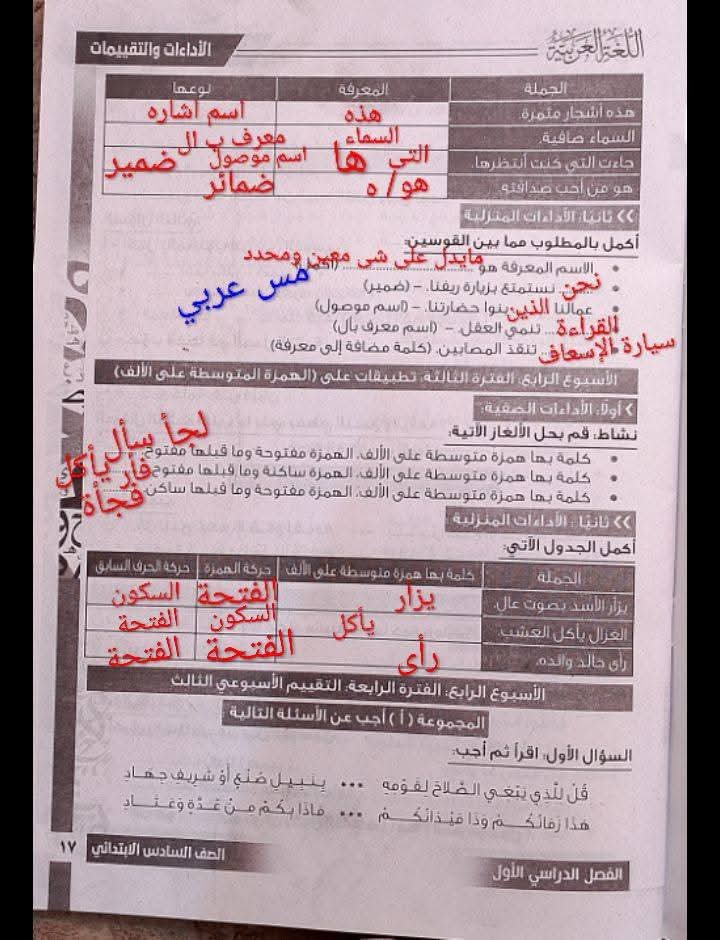 اللغة العربية
الأداءات والتقييمات
الجملة المعرفة نوعها
هذه أشجار مثمرة. هذه اسم اشاره
السماء صافية. السماء معرف ب ال
جاءت التي كنت أنتظرها. التى ها اسم موصول ضمير
هو من أحب صداقته. هو/ ه ضمائر
>> ثانيًا: الأداءات المنزلية
أكمل بالمطلوب مما بين القوسين:
الاسم المعرفة هو مايدل على شى معين ومحدد
نحن نستمتع بزيارة ريفنا. - (ضمير)
مس عربي
عمالنا الذين بنوا حضارتنا. - (اسم موصول)
القراءة تنمي العقل. - (اسم معرف بأل)
سيارة الإسعاف تنقذ المصابين. (كلمة مضافة إلى معرفة)
الأسبوع الرابع: الفترة الثالثة: تطبيقات على (الهمزة المتوسطة على الألف)
> أولًا: الأداءات الصفية:
نشاط: قم بحل الألغاز الآتية:
كلمة بها همزة متوسطة على الألف، الهمزة مفتوحة وما قبلها مفتوح لجأ سأل
كلمة بها همزة متوسطة على الألف، الهمزة ساكنة وما قبلها مفتوح فأر يأكل
كلمة بها همزة متوسطة على الألف، الهمزة مفتوحة وما قبلها ساكن. فجأة
>> ثانيًا: الأداءات المنزلية
أكمل الجدول الآتي:
الجملة كلمة بها همزة متوسطة على الألف حركة الهمزة حركة الحرف السابق
يزأر الأسد بصوت عال. يزأر الفتحة السكون
الغزال يأكل العشب. يأكل السكون الفتحة
رأى خالد والده. رأى الفتحة الفتحة
الأسبوع الرابع: الفترة الرابعة: التقييم الأسبوعي الثالث
المجموعة ( أ ) أجب عن الأسئلة التالية
السؤال الأول: اقرأ ثم أجب:
قُلْ لِلَّذِي يَبْغَي الصَّلَاحَ لِقَوْمِهِ ... بِنَبِيلِ صُنْعٍ أَوْ شَرِيفِ جِهَادِ
هَذَا زَمَانُكُمْ وَذَا مَيْدَانُكُمْ ... مَاذَا بِكُمْ مِنْ عُدَّةٍ وَعَتَادِ
الفصل الدراسي الأول
الصف السادس الابتدائي
١٧